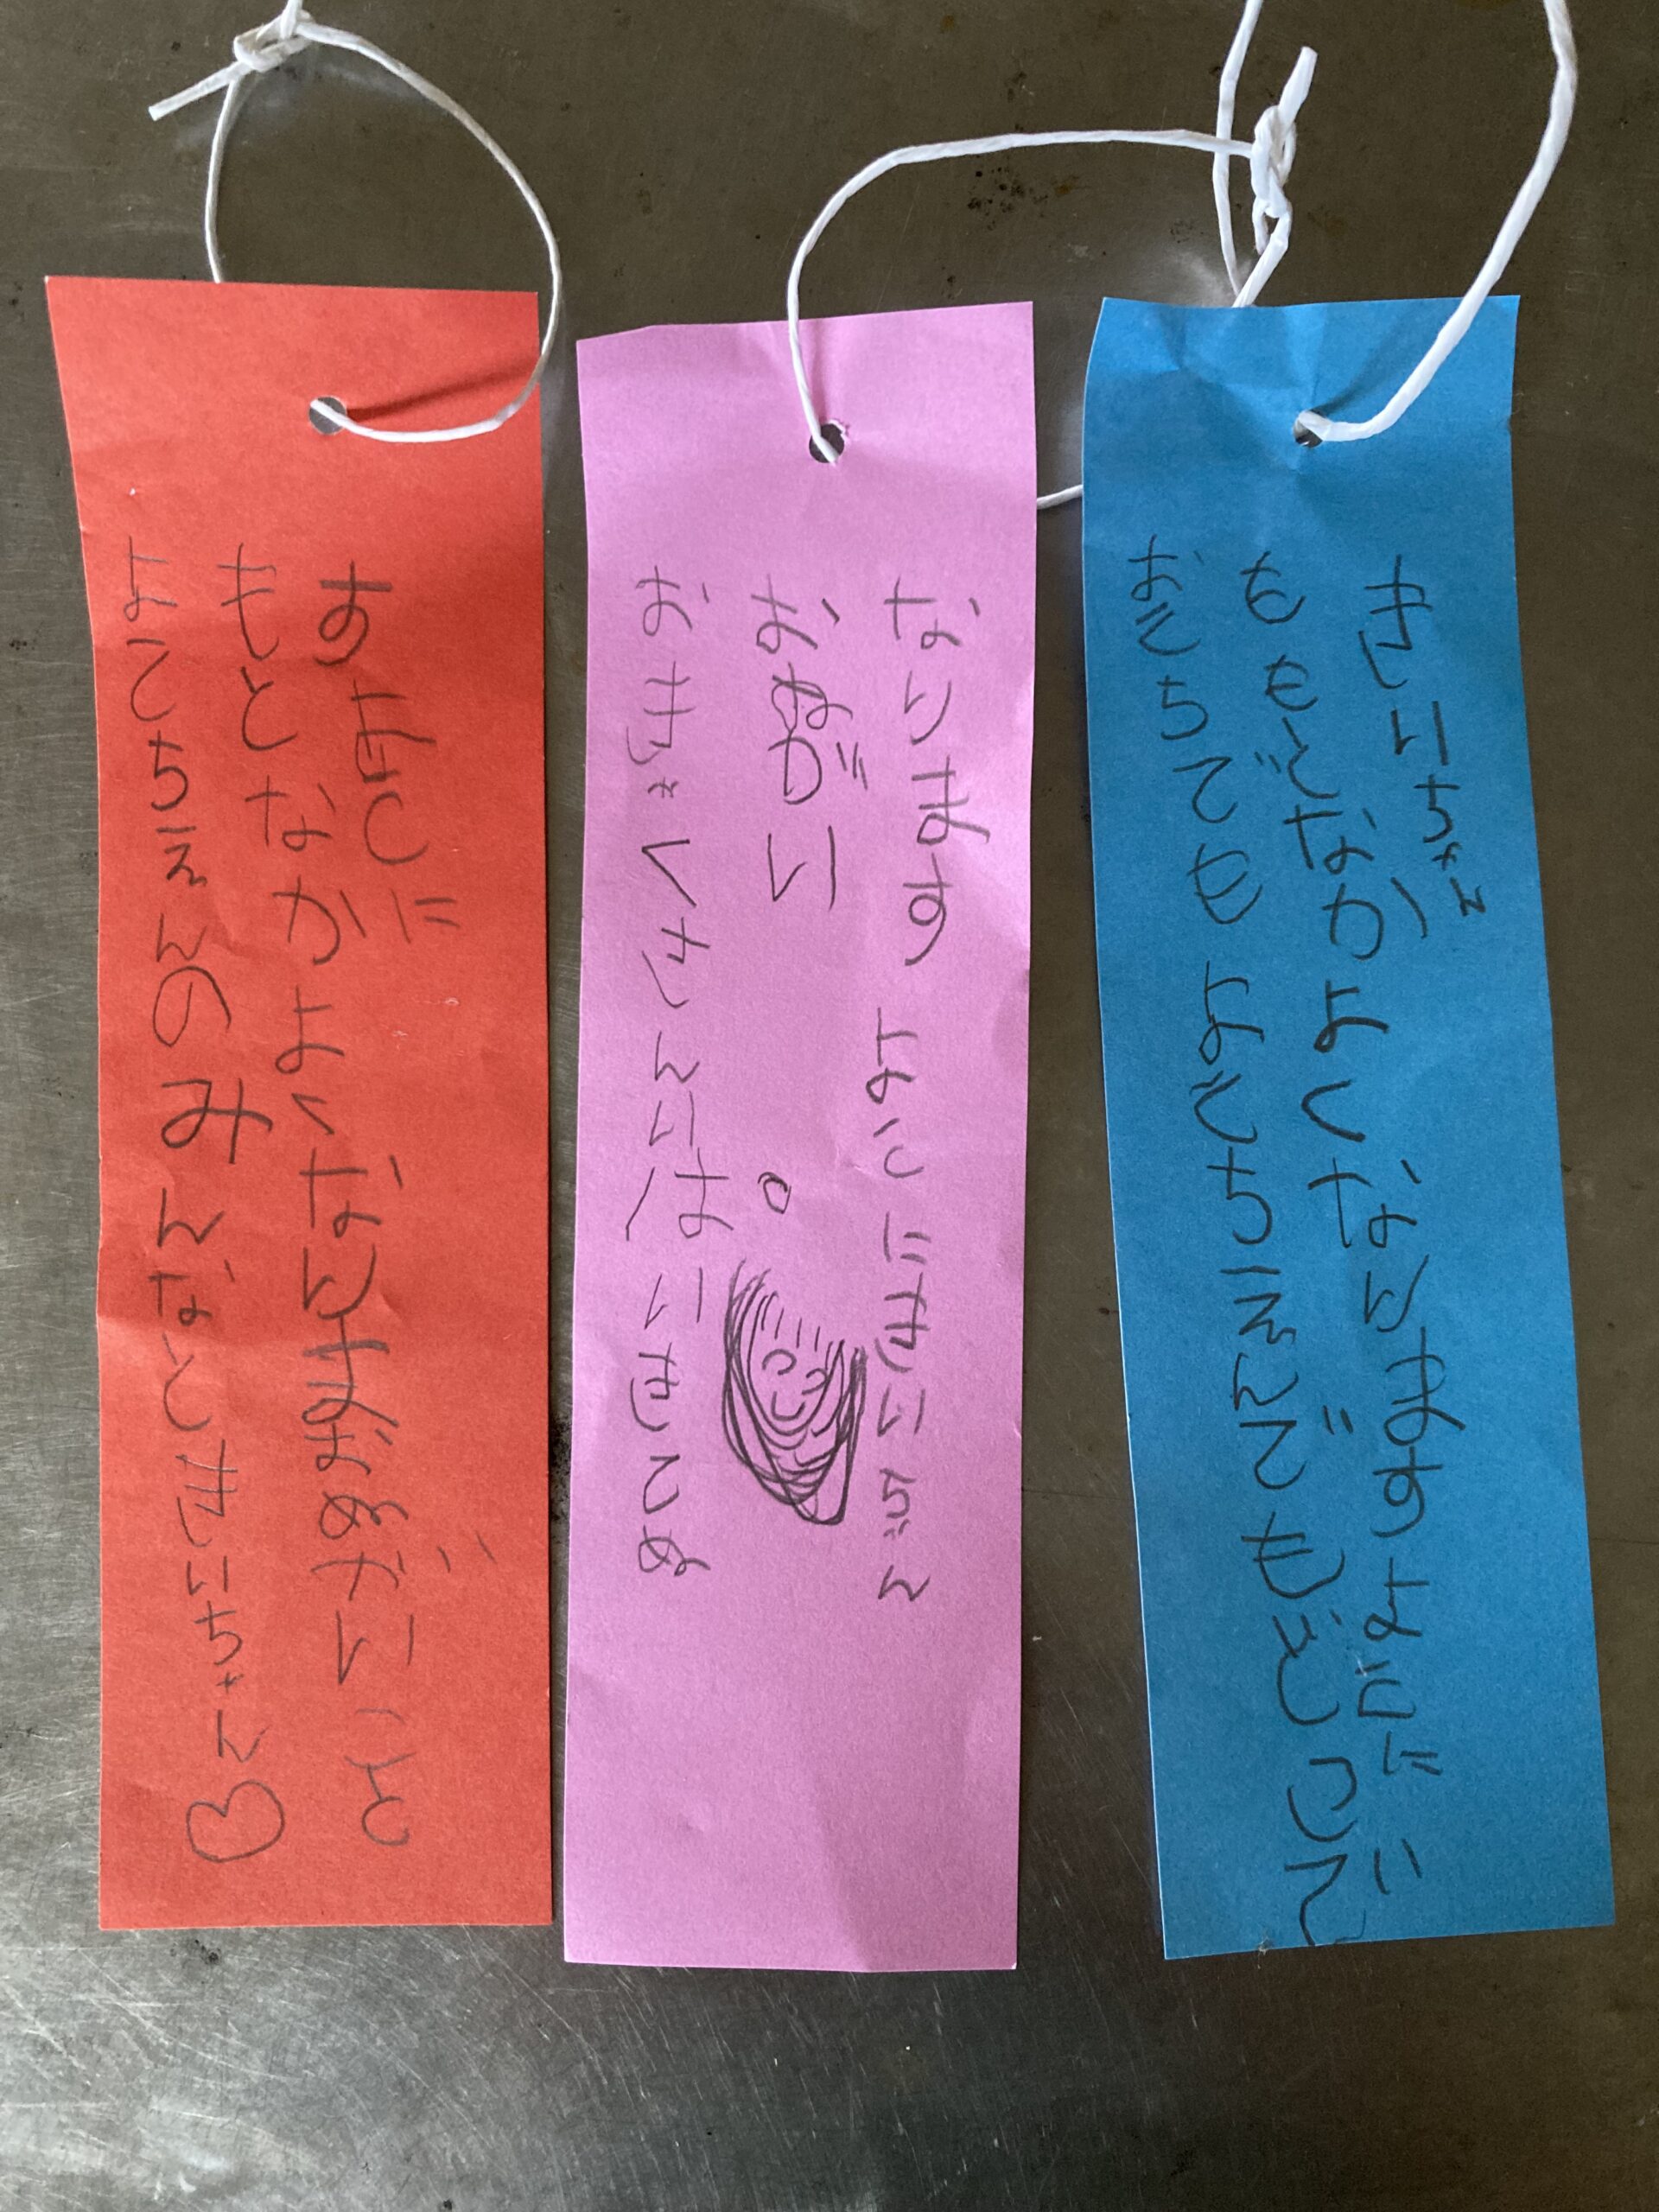 ようちえんのみんなときいちゃん♡
もとなかよくなりまおねがいごと
すように
おきゃくさんいぱいきてね
おねがい
なります ように きいちゃん
おうちでも ようちえんでもどこで
ももとなかよくなりますように
きいちゃん